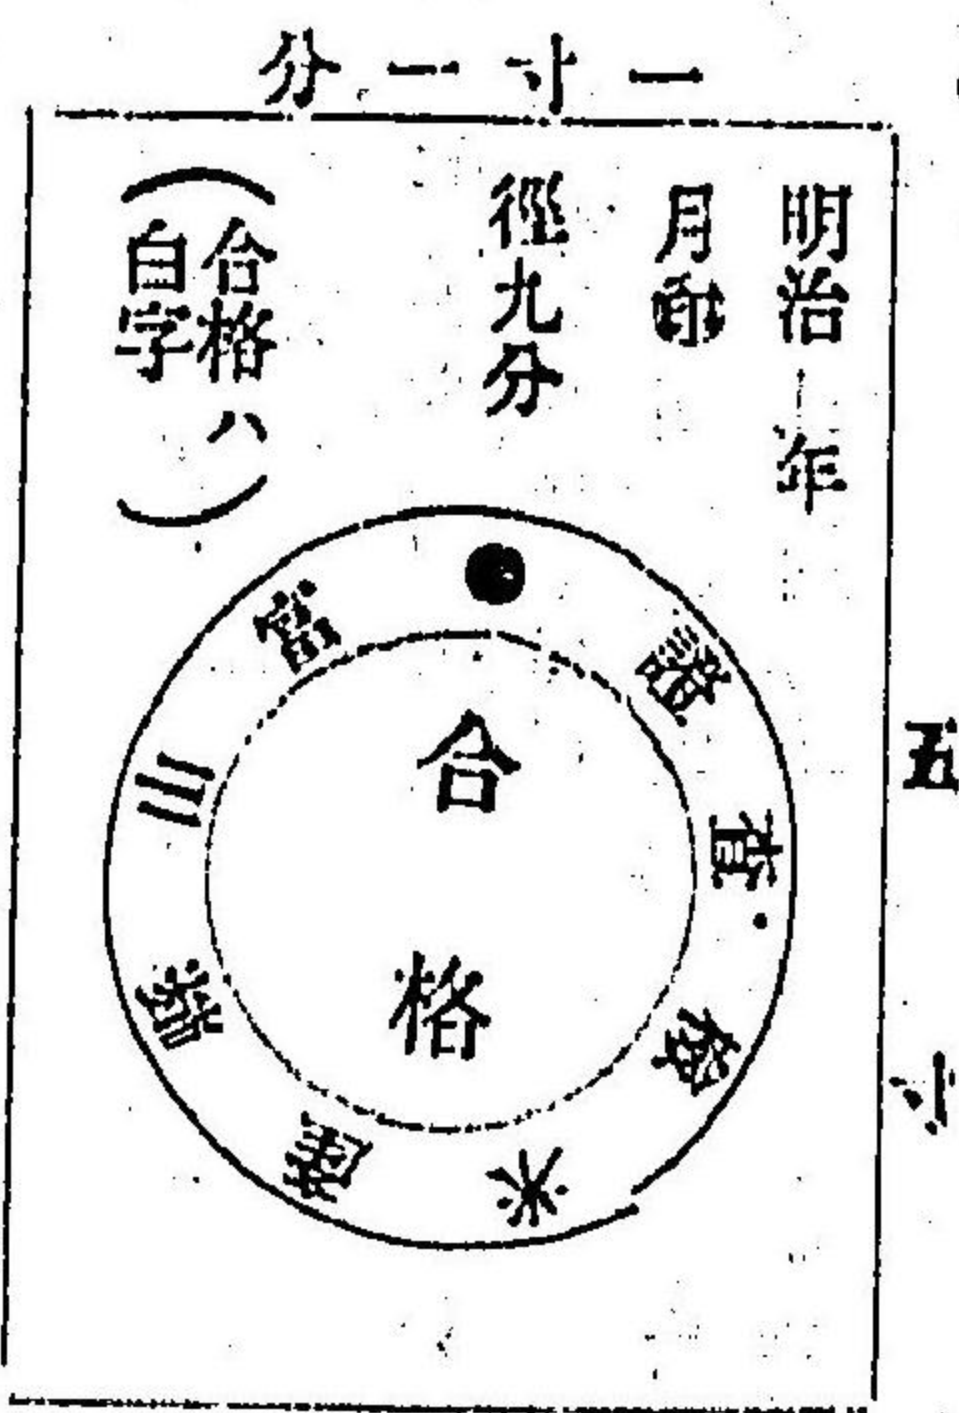 一寸一分
明治 年
月印
徑九分
(合格ハ
白字)
富山縣産米檢査證
合格
五